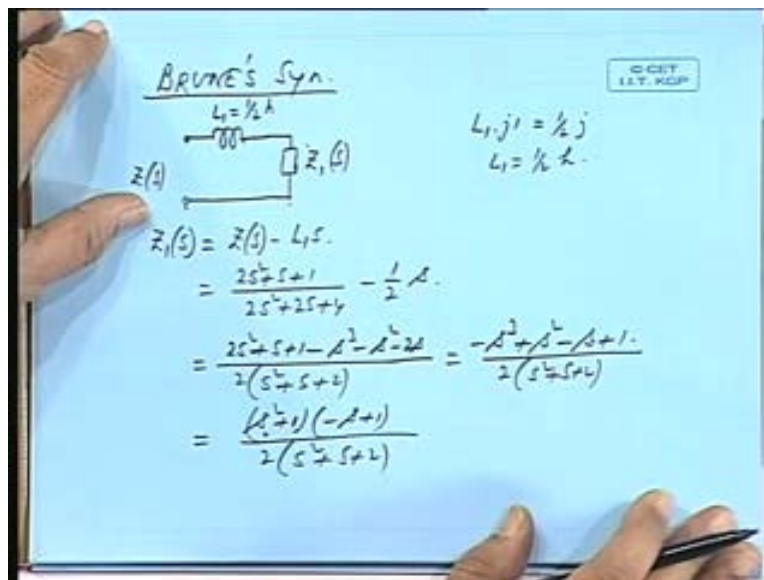 BRUNE'S Syn.
C-CET
I.I.T. KGP
L₁ = ½ h
Z(s)
Z₁(s)
L₁.j1 = ½ j
L₁ = ½ h.
Z₁(s) = Z(s) - L₁s.
= (2s²+s+1)/(2s²+2s+4) - ½ s.
= (2s²+s+1-s³-s²-2s)/(2(s²+s+2)) = (-s³+s²-s+1.)/(2(s²+s+2))
= ((s²+1)(-s+1))/(2(s²+s+2))